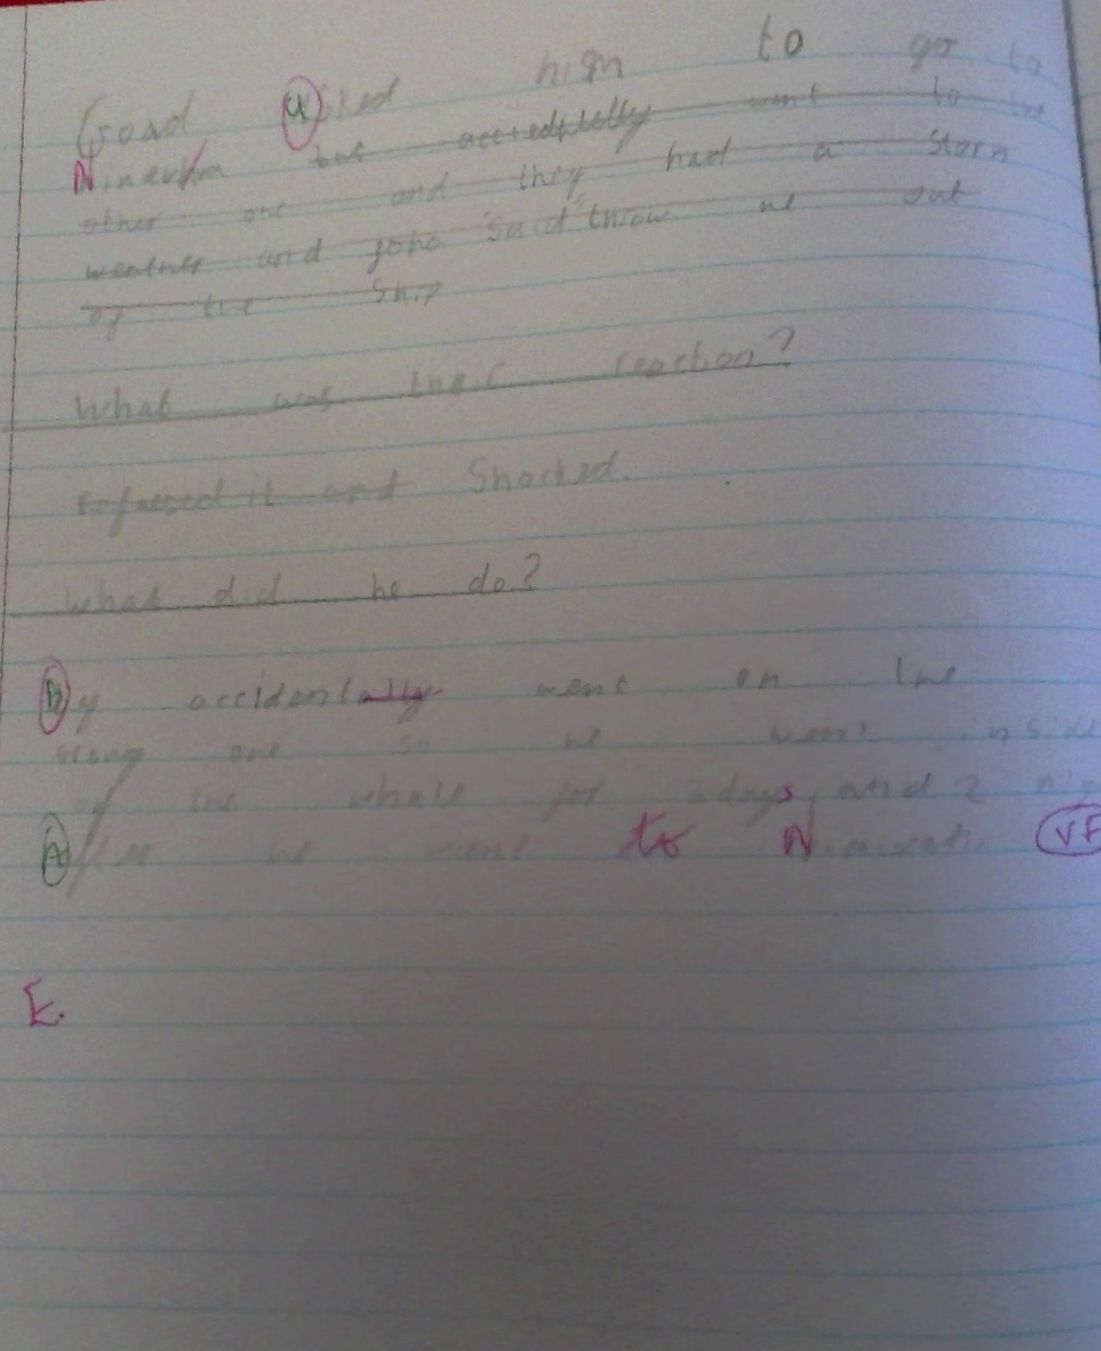 Goad asked him to go to
Ninevha but accedptally went to the
other one and they had a storm
weather and joho "said" throw me out
of the ship
What was their reaction?
refuesed it and Shocked.
What did he do?
By accidentally went on the
wrong one so he went inside
of the whale for 2days, and 2
After he went to Ninivah. VF
E.